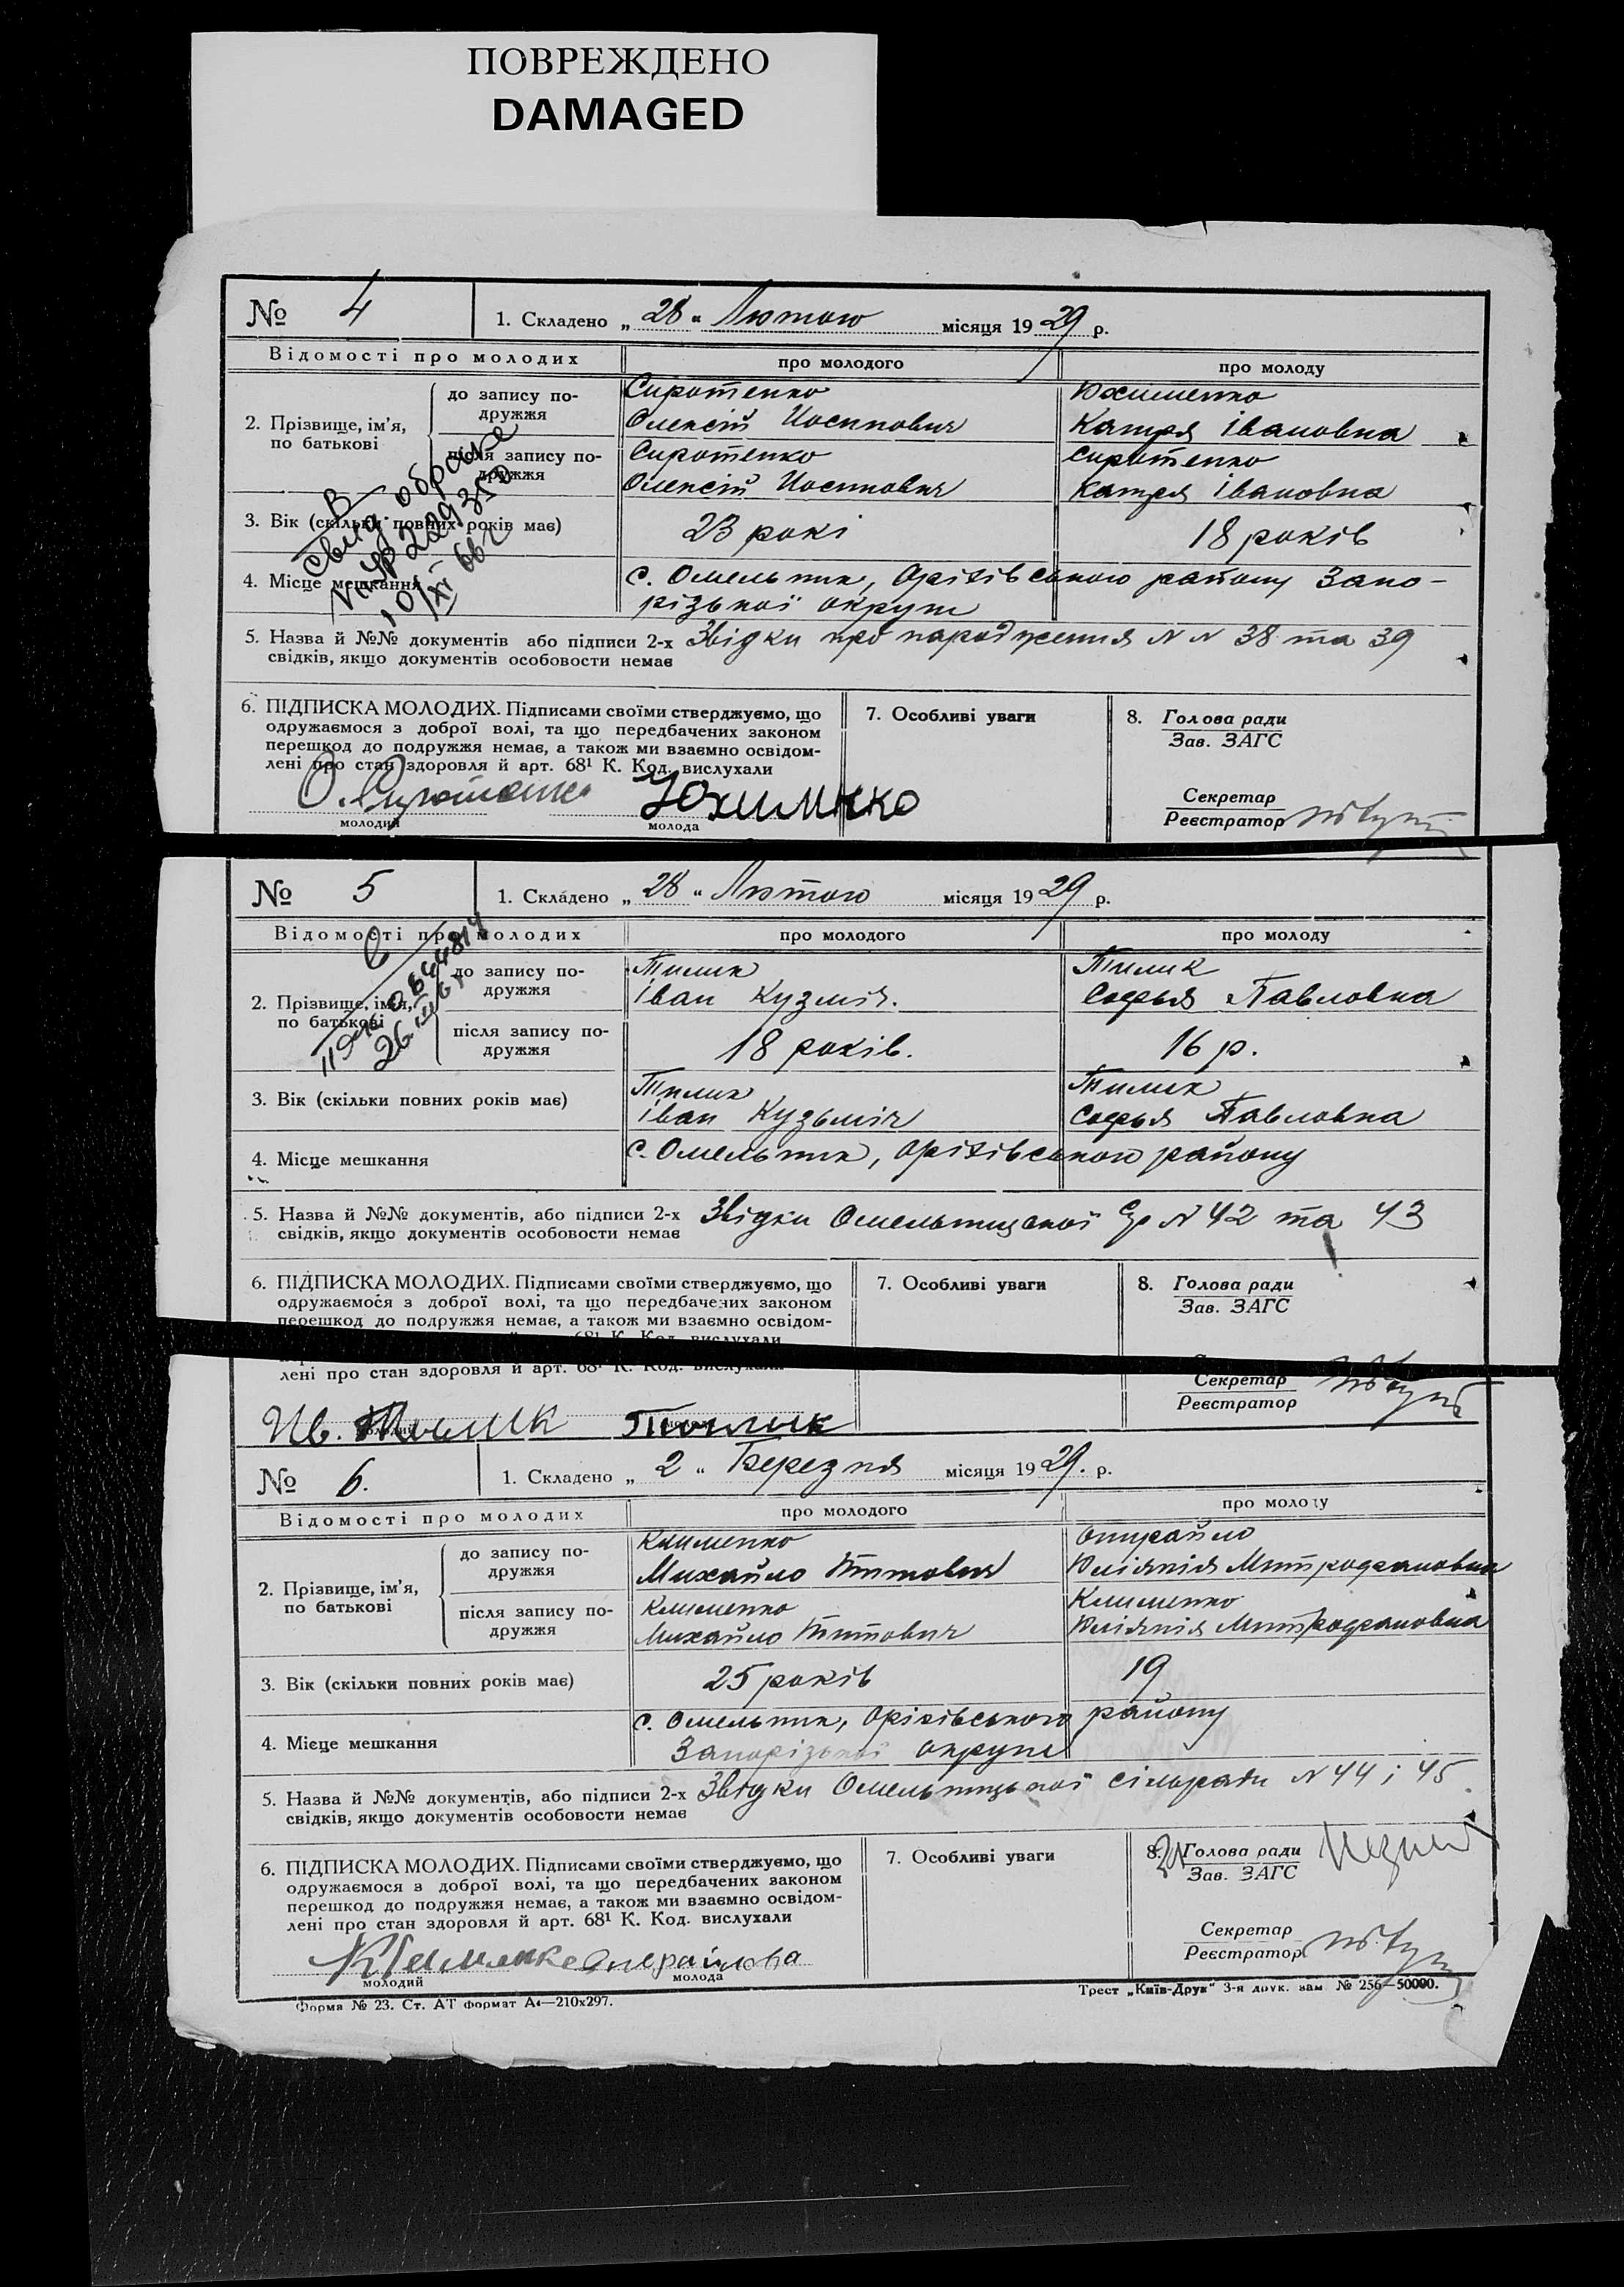 ПОВРЕЖДЕНО
DAMAGED
№ 4
1. Складено „ 28 “ Лютого місяця 1929 р.
Відомості про молодих
про молодого
про молоду
2. Прізвище, ім’я, по батькові
до запису по-
дружжя
Сиротенко
Олексій Иосипович
Юхименко
Катря Івановна
після запису по-
дружжя
Сиротенко
Олексій Иосипович
Сиротенко
Катря Івановна
3. Вік (скільки повних років має)
23 рокі
18 років
4. Місце мешкання
с. Омельник, Оріхівського району Запо-
різької округи
5. Назва й №№ документів або підписи 2-х
свідків, якщо документів особовости немає
Звідки про народження N N 38 та 39
6. ПІДПИСКА МОЛОДИХ. Підписами своїми стверджуємо, що
одружаємося з доброї волі, та що передбачених законом
перешкод до подружжя немає, а також ми взаємно освідом-
лені про стан здоровля й арт. 68¹ К. Код. вислухали
О. Сиротенко
Юхимнко
молодий
молода
7. Особливі уваги
8. Голова ради
Зав. ЗАГС
Секретар
Реєстратор
№ 5
1. Складено „ 28 “ Лютого місяця 1929 р.
Відомості про молодих
про молодого
про молоду
2. Прізвище, ім’я,
по батькові
до запису по-
дружжя
Тилик
Іван Кузміч.
Тилик
Софья Павловна
після запису по-
дружжя
18 років.
16 р.
3. Вік (скільки повних років має)
Тилик
Іван Кузьміч
Тилик
Софья Павловна
4. Місце мешкання
с. Омельник, Оріхівського району
5. Назва й №№ документів, або підписи 2-х
свідків, якщо документів особовости немає
Звідки Омельницької Ср N 42 та 43
6. ПІДПИСКА МОЛОДИХ. Підписами своїми стверджуємо, що
одружаємося з доброї волі, та що передбачених законом
перешкод до подружжя немає, а також ми взаємно освідом-
лені про стан здоровля й арт. 68¹ К. Код. вислухали
Ив. Тилик
Тилик
7. Особливі уваги
8. Голова ради
Зав. ЗАГС
Секретар
Реєстратор
№ 6.
1. Складено „ 2 “ Березня місяця 1929. р.
Відомості про молодих
про молодого
про молоду
2. Прізвище, ім’я,
по батькові
до запису по-
дружжя
Клименко
Михайло Титович
Опирайло
Юліянія Митрофановна
після запису по-
дружжя
Клименко
Михайло Титович
Клименко
Юліянія Митрофановна
3. Вік (скільки повних років має)
25 років
19
4. Місце мешкання
с. Омельник, Оріхівського району
Запорізької округи
5. Назва й №№ документів, або підписи 2-х
свідків, якщо документів особовости немає
Звідки Омельницької сільради N 44 і 45
6. ПІДПИСКА МОЛОДИХ. Підписами своїми стверджуємо, що
одружаємося з доброї волі, та що передбачених законом
перешкод до подружжя немає, а також ми взаємно освідом-
лені про стан здоровля й арт. 68¹ К. Код. вислухали
Клименко
Опирайлова
молодий
молода
7. Особливі уваги
8. Голова ради
Зав. ЗАГС
Секретар
Реєстратор
Форма № 23. Ст. АТ формат А4—210х297.
Трест „Київ-Друк“ 3-я друк. зам. № 256—50000.